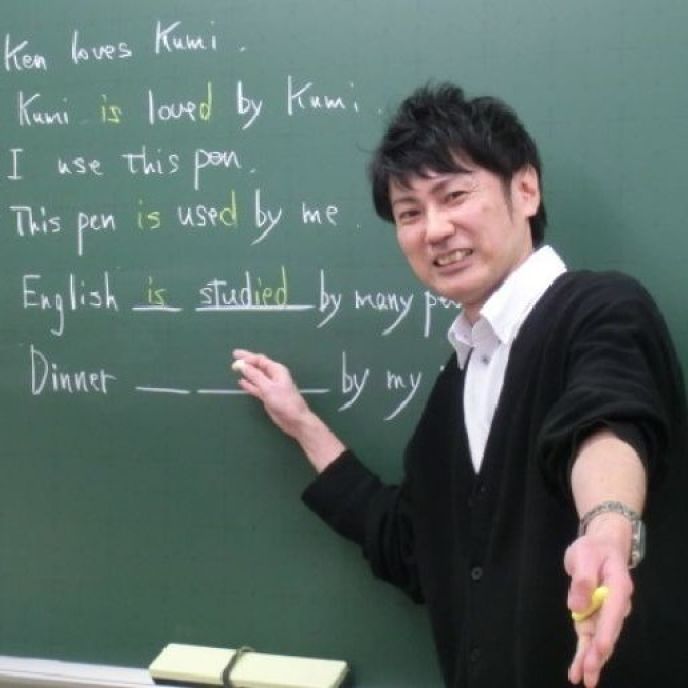 Ken loves Kumi.
Kumi is loved by Kumi.
I use this pen.
This pen is used by me.
English is studied by many
Dinner __ ____ by my